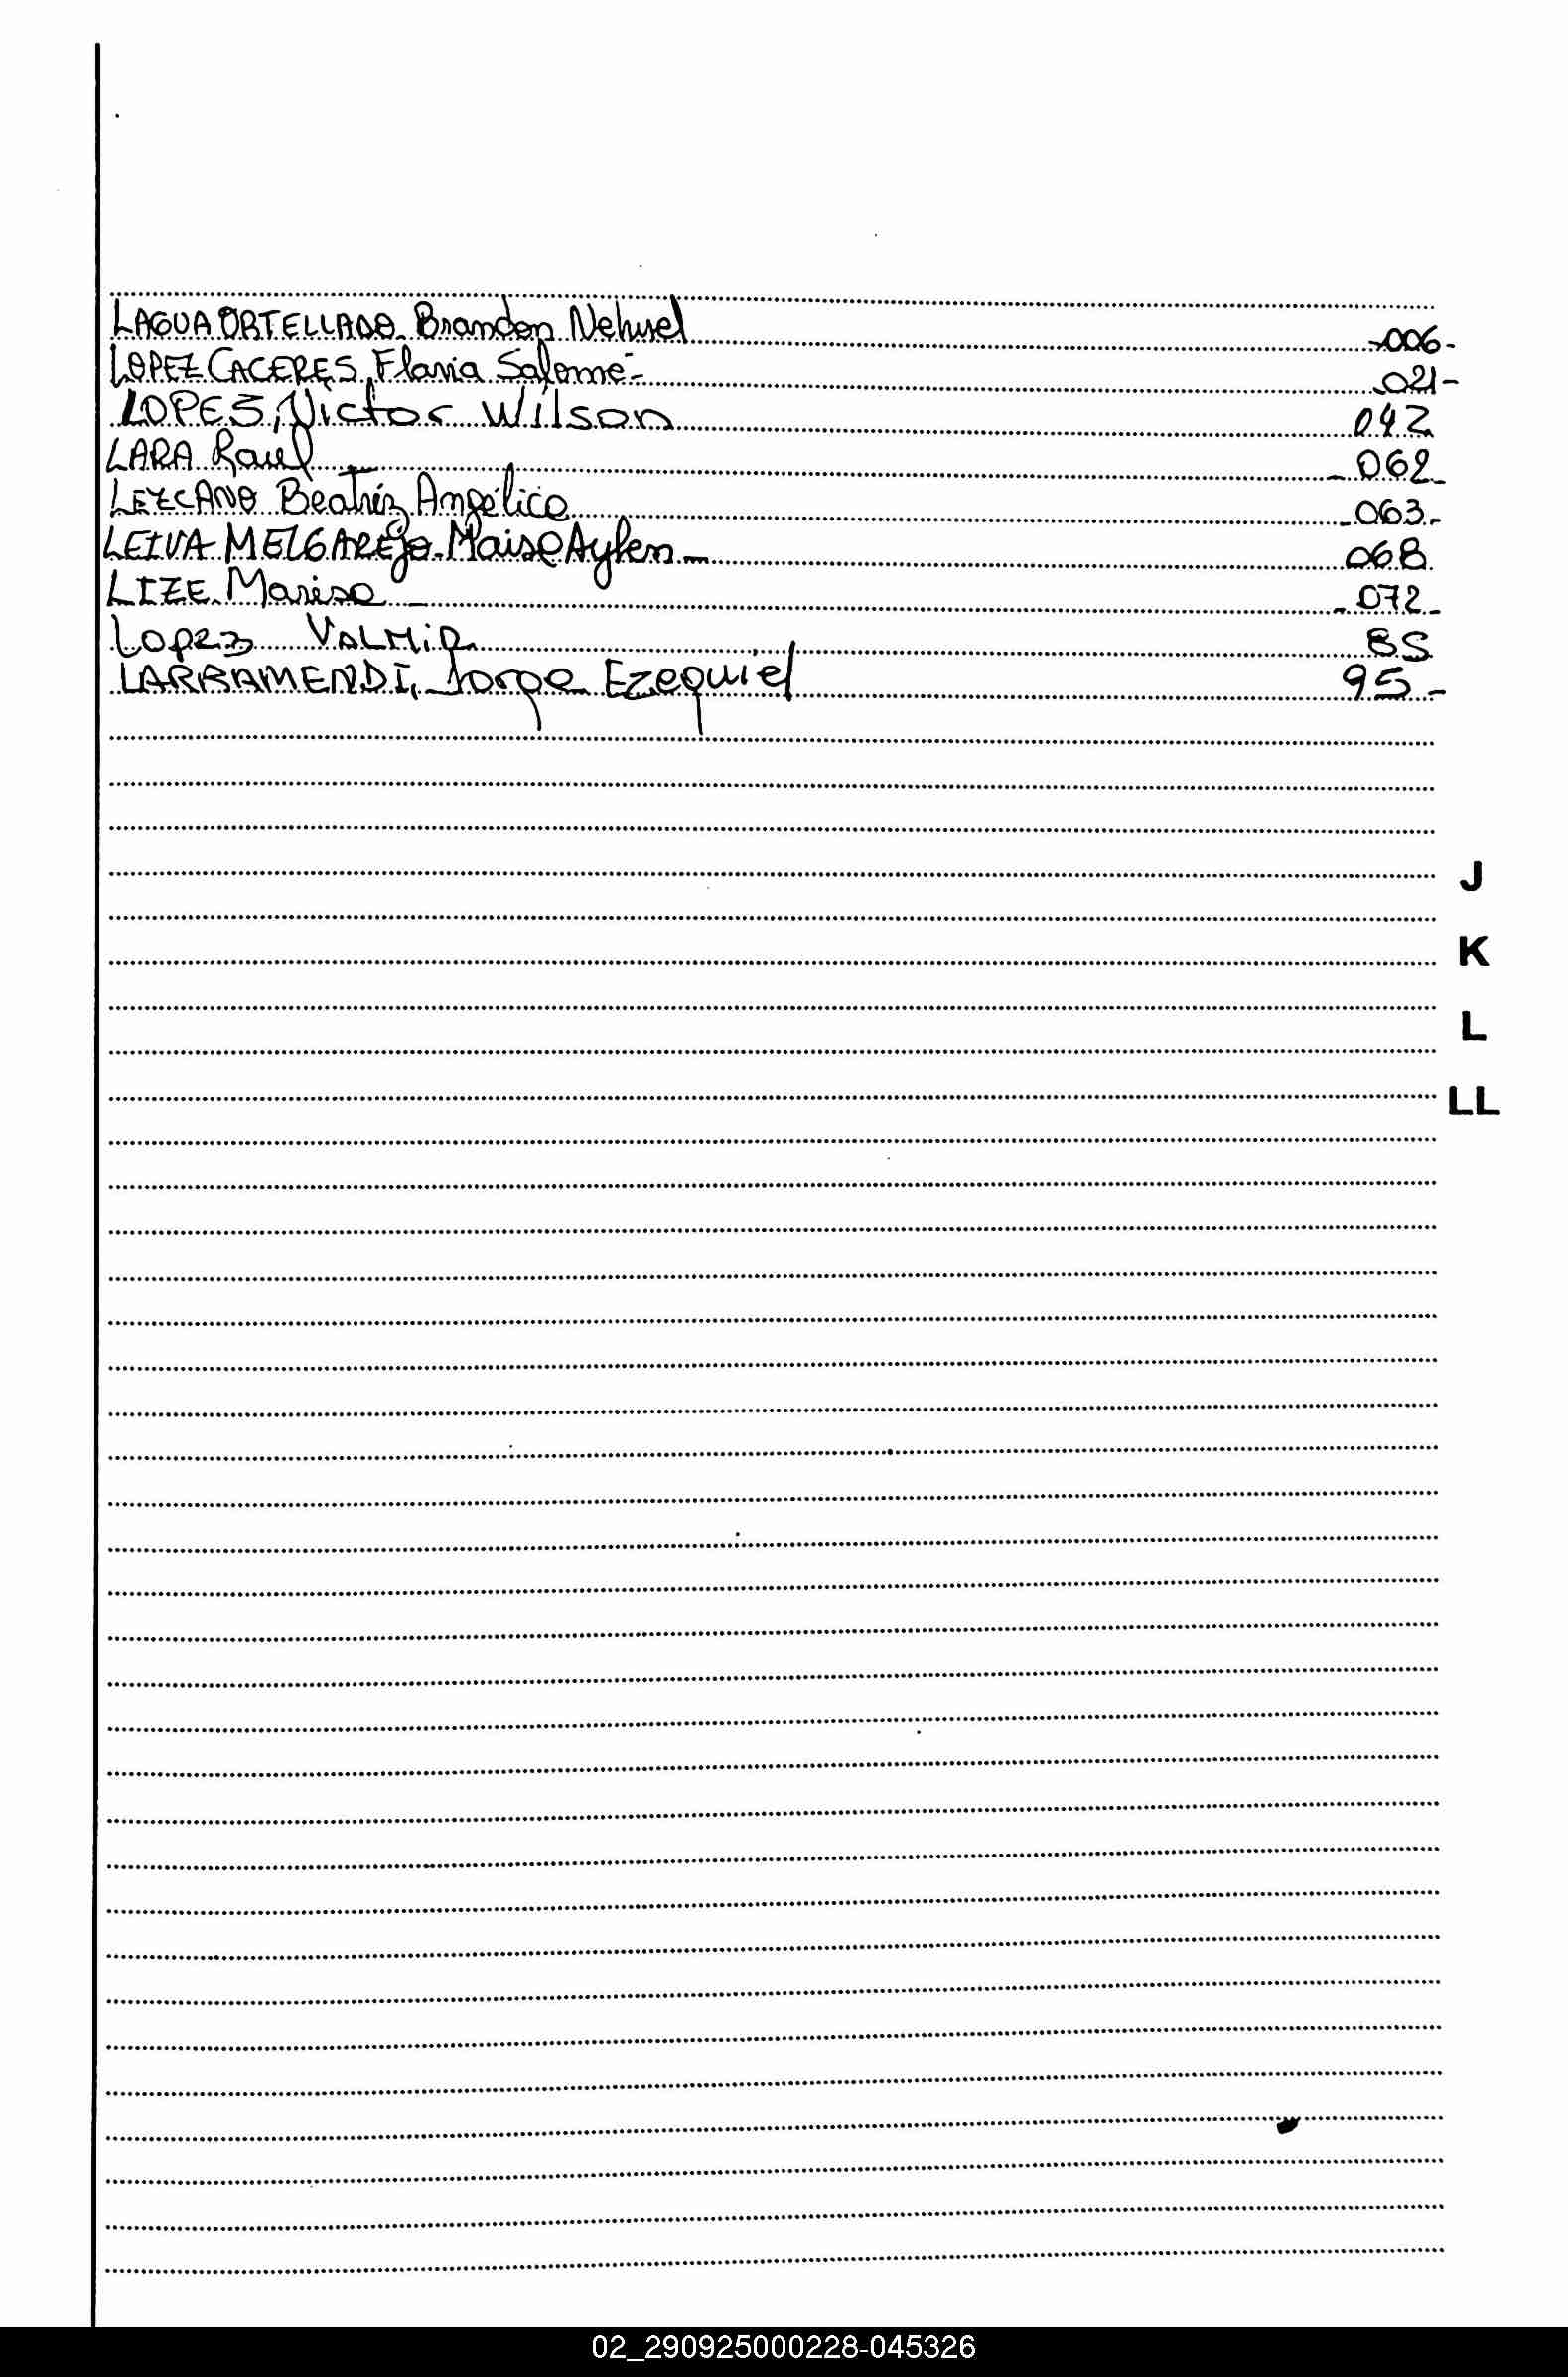 LAGUA ORTELLADO Brandon Nehuel -006-
LOPEZ CACERES, Flavia Salomé- 021-
LOPES, Victor Wilson 042
LARA Raul - 062-
LEZCANO Beatriz Angélica -063-
LEIVA MELGAREJO Maise Aylen- 068
LIZE Marisa - - 072-
Lopez VALMIR 85
LARRAMENDI, Jorge Ezequiel 95-
J
K
L
LL
02_290925000228-045326